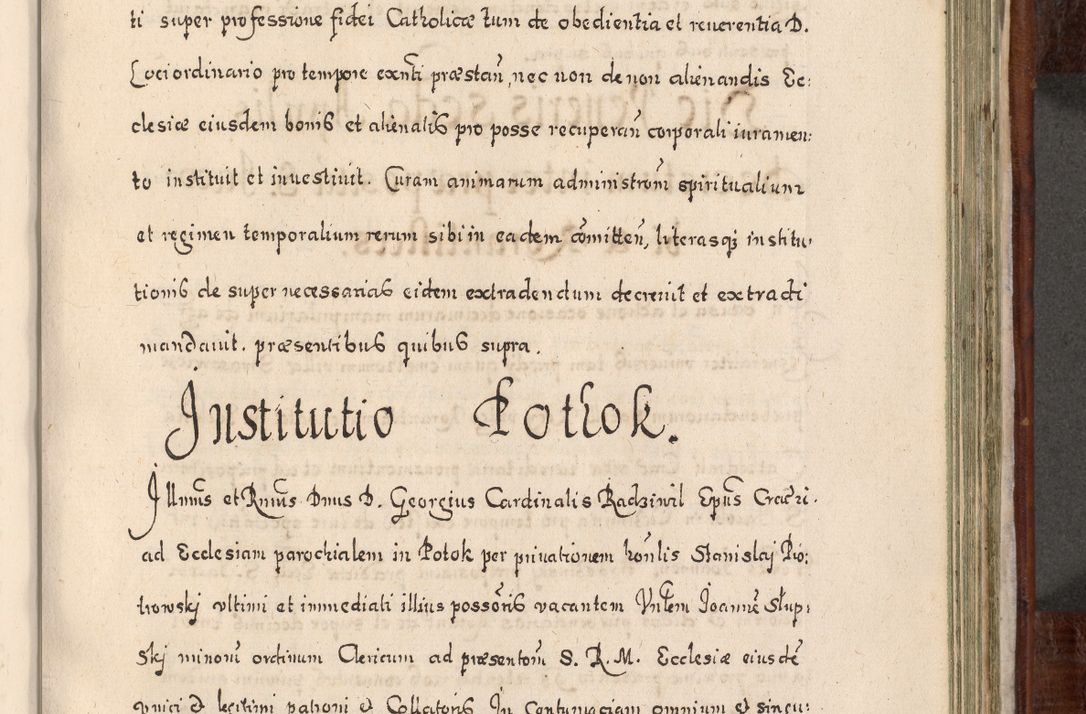 ti super professione fidei Catholicæ tum de obedientia et reuerentia D.
Loci ordinario pro tempore exnti præstañ, nec non de non alienandis Ec:
clesiæ eiusdem bonis et alienatis pro posse recuperañ corporali iuramen:
to instituit et inuestiuit. Curam animarum administrom̃ spiritualium
et regimen temporalium rerum sibi in eadem com̃itteñ, literasqz institu,
tionis de super necessarias eidem extradendum decreuit et extradi
mandauit. præsentibus quibus supra.
Institutio Pothok.
Jllm̃us et Rm̃us Dnus D. Georgius Cardinalis Radziwil Epũs Craco͠ri.
ad Ecclesiam parochialem in Potok per priuationem hon̄lis Stanislaj Pio:
trowskj vltimi et immediati illius possõris vacantem Vn̄tem Joannẽ Słup:
skj minorũ ordinum Clericum ad præsentom̃ S. R. M. Ecclesiæ eiusdẽ
vnici & legitimi patroni & Collatoris Jn Contumaciam omnium & singu: